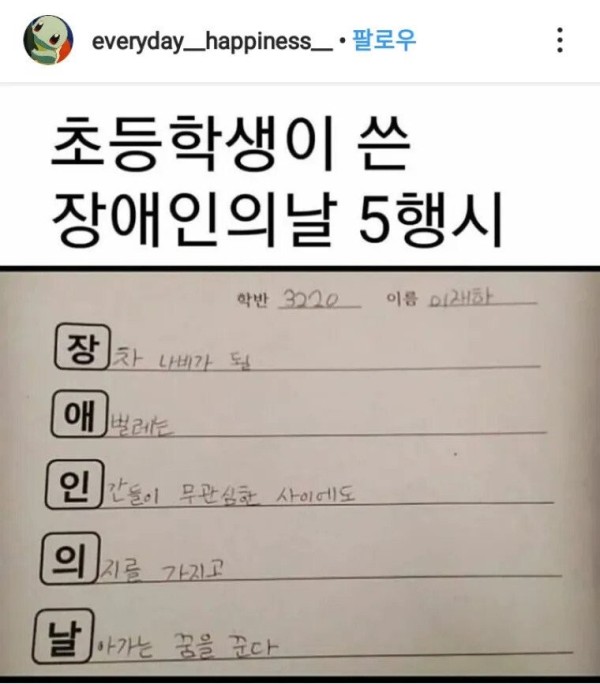 everyday__happiness__ • 팔로우
초등학생이 쓴
장애인의날 5행시
학반 3220 이름 이재하
장차 나비가 될
애벌레는
인간들이 무관심한 사이에도
의지를 가지고
날아가는 꿈을 꾼다